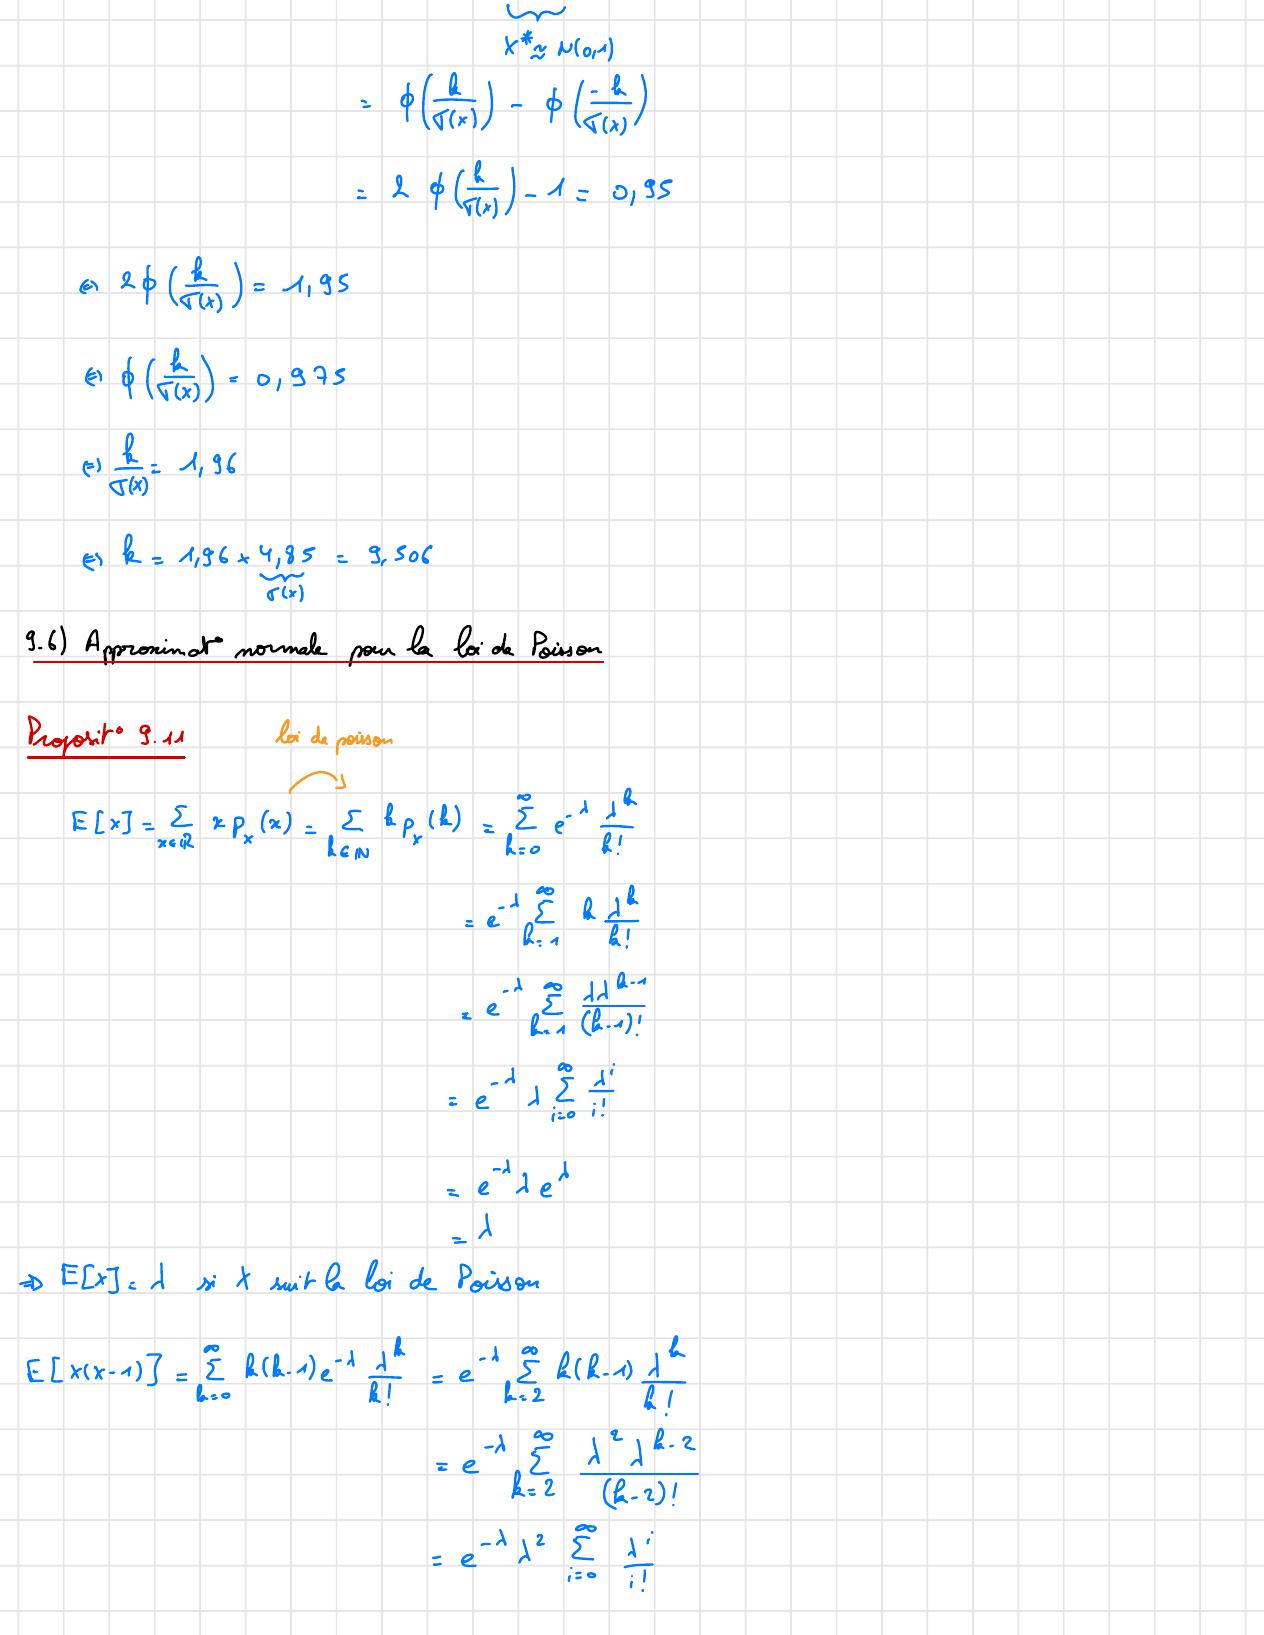 X* ≈ N(0,1)
= ϕ(k/σ(x)) - ϕ(-k/σ(x))
= 2 ϕ(k/σ(x)) - 1 = 0,95
⇔ 2ϕ(k/σ(x)) = 1,95
⇔ ϕ(k/σ(x)) = 0,975
⇔ k/σ(x) = 1,96
⇔ k = 1,96 × 4,85 = 9,506
σ(x)
9.6) Approximat° normale pour la loi de Poisson
Proposit° 9.11 loi de poisson
E[x] = Σ_{x∈ℝ} x p_x(x) = Σ_{k∈ℕ} k p_x(k) = Σ_{k=0}^∞ e^{-λ} λ^k/k!
= e^{-λ} Σ_{k=1}^∞ k λ^k/k!
= e^{-λ} Σ_{k=1}^∞ λλ^{k-1}/(k-1)!
= e^{-λ} λ Σ_{i=0}^∞ λ^i/i!
= e^{-λ} λ e^λ
= λ
⇒ E[x] = λ si X suit la loi de Poisson
E[x(x-1)] = Σ_{k=0}^∞ k(k-1) e^{-λ} λ^k/k! = e^{-λ} Σ_{k=2}^∞ k(k-1) λ^k/k!
= e^{-λ} Σ_{k=2}^∞ λ² λ^{k-2}/(k-2)!
= e^{-λ} λ² Σ_{i=0}^∞ λ^i/i!